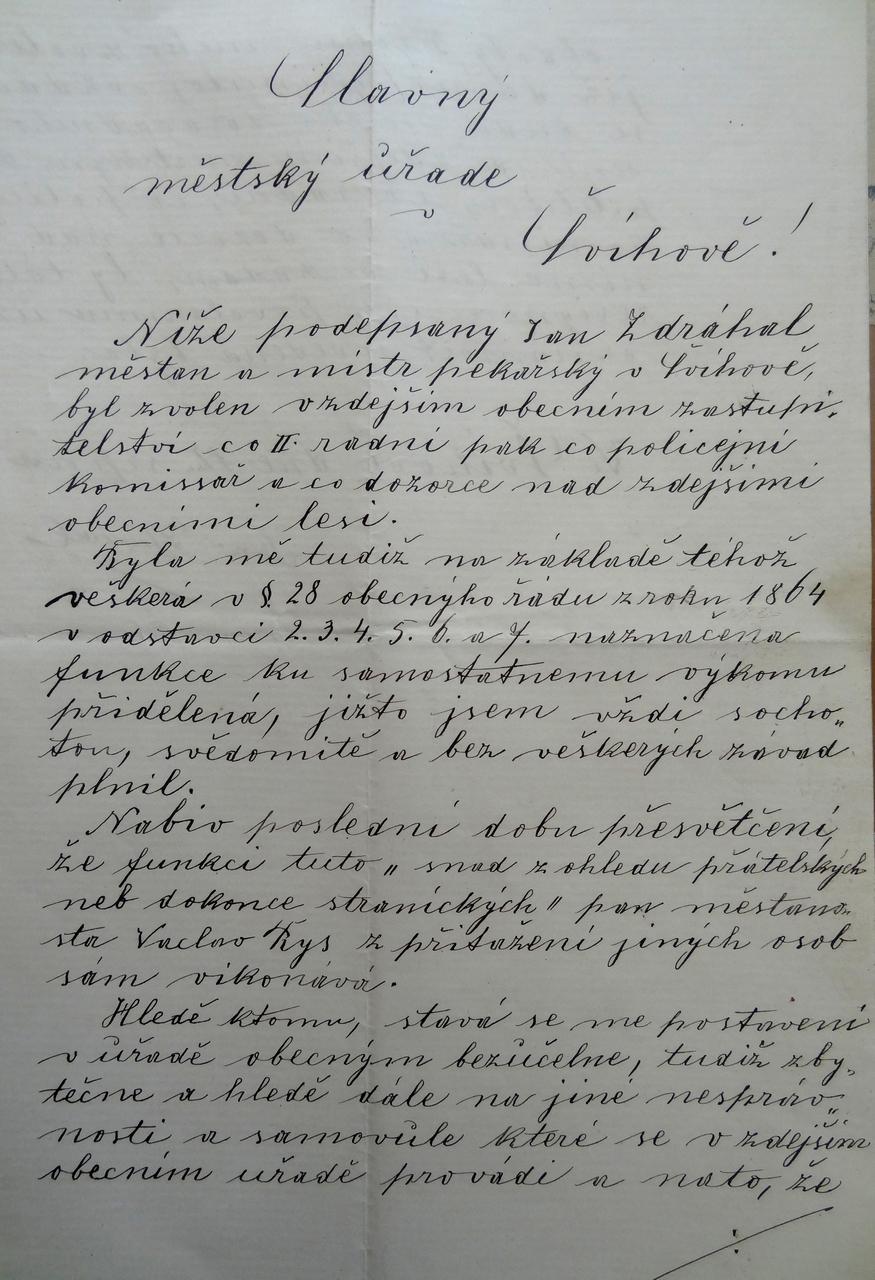 Slavný
městský úřade
v
Švihově!
Níže podepsaný Jan Zdráhal
městan a mistr pekařský v Švihově,
byl zvolen vzdejším obecním zastupi„
telství co II. radní pak co policejní
komissař a co dozorce nad zdejšími
obecními lesi.
Byla mě tudiž na základě téhož
veškerá v §. 28 obecnýho řádu z roku 1864
v odstavci 2. 3. 4. 5. 6. a 7. naznačena
funkce ku samostatnemu výkomu
přidělená, jižto jsem vždi socho„
tou, svědomitě a bez veškerých závad
plnil.
Nabiv poslední dobu přesvětčení,
že funkci tuto „ snad z ohledu přátelských
neb dokonce stranických" pan měšťano„
sta Vaclav Rys z přitažení jiných osob
sám vikonává.
Hledě ktomu, stavá se me postavení
v úřadě obecným bezúčelne, tudiž zby„
tečne a hledě dále na jiné nespráv„
nosti a samovůle které se v zdejším
obecním uřadě provádi a nato, že
./.